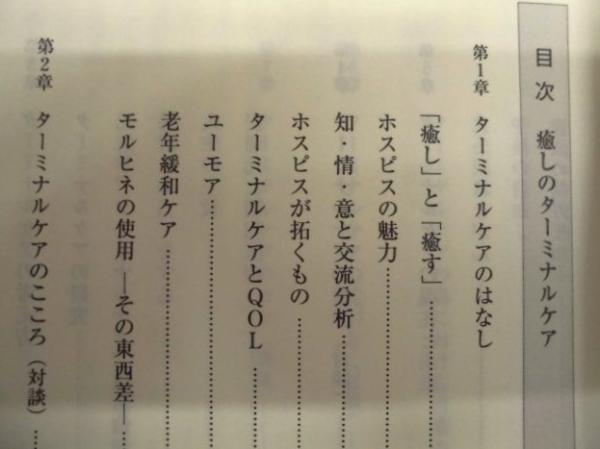 目次　癒しのターミナルケア
第1章　ターミナルケアのはなし
「癒し」と「癒す」……………………
ホスピスの魅力……………………
知・情・意と交流分析……………………
ホスピスが拓くもの……………………
ターミナルケアとQOL……………………
ユーモア……………………
老年緩和ケア……………………
モルヒネの使用　―その東西差―……
第2章　ターミナルケアのこころ（対談）……